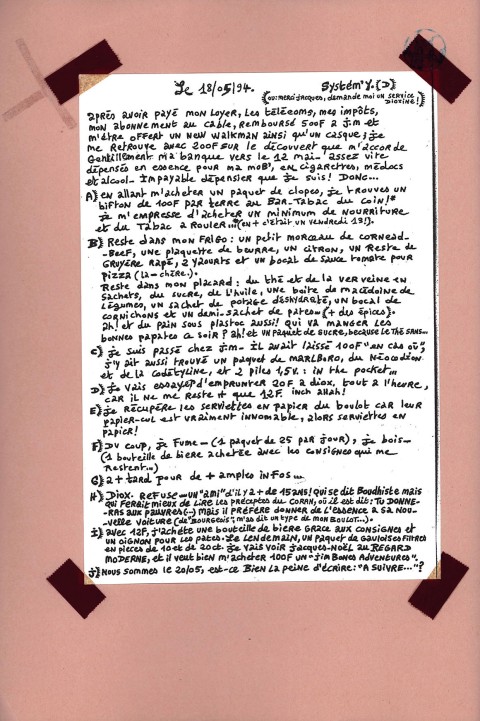 Le 18/05/94.
Systém'Y.{D}
(ou: merci Jacques, demande moi un service Diozine!)
après avoir payé mon loyer, les télécoms, mes impôts,
mon abonnement au cable, remboursé 500F à Jim et
m'être offert un new walkman ainsi qu'un casque; je
me retrouve avec 200F sur le découvert que m'accorde
gentillement ma banque vers le 12 mai- assez vite
dépensés en essence pour ma mob', en cigarettes, médocs
et alcool- impayable dépensier que je suis! Donc...
A} en allant m'acheter un paquet de clopes, je trouves un
bifton de 100F par terre au Bar-Tabac du coin!*
je m'empresse d'acheter un minimum de nourriture
et du tabac à rouler...(en + c'était un vendredi 13!).
B} Reste dans mon frigo: un petit morceau de cornead-
-Beef, une plaquette de beurre, un citron, un reste de
gruyère rapé, 2 yaourts et un bocal de sauce tomate pour
pizza (la-chère.).
Reste dans mon placard: du thé et de la verveine en
sachets, du sucre, de l'huile, une boite de macédoine de
légumes, un sachet de potage déshydraté, un bocal de
cornichons et un demi-sachet de pates...(+ des épices).
ah! et du pain sous plastoc aussi! qui va manger les
bonnes papates ce soir? ah! et un paquet de sucre, because le thé sans...
C} je suis passé chez Jim- il avait laissé 100F "en cas où",
j'y ait aussi trouvé un paquet de Marlboro, du néocodion
et de la codétyline, et 2 piles 1,5v.: in the pocket...
D} je vais essayer d'emprunter 20F à Diox, tout à l'heure,
car il ne me reste + que 12F. inch allah!
E} je récupère les serviettes en papier du boulot car leur
papier-cul est vraiment innomable, alors serviettes en
papier!
F} Du coup, je fume- (1 paquet de 25 par jour), je bois-
(1 bouteille de biere achetée avec les consignes qui me
restent...)
G} a + tard pour de + amples infos...
H} Diox. refuse- un "ami" d'il y a + de 15 ans! Qui se dit Boudhiste mais
qui ferait mieux de lire les préceptes du Coran, où il est dit: Tu donne-
-ras aux pauvres(-) mais il préfère donner de l'essence à sa nou-
-velle voiture (de "bourgeois", m'as dit un type de mon boulot...).
I} avec 12F, j'achète une bouteille de bière grace aux consignes et
un oignon pour les pates. Le lendemain, un paquet de Gauloises filtres
en pièces de 10 et de 20ct. Je vais voir Jacques-Noël au Regard
Moderne, et il veut bien m'acheter 100F un "Jim Bones Adventures".
J} Nous sommes le 20/05, est-ce bien la peine d'écrire: "A suivre..."?